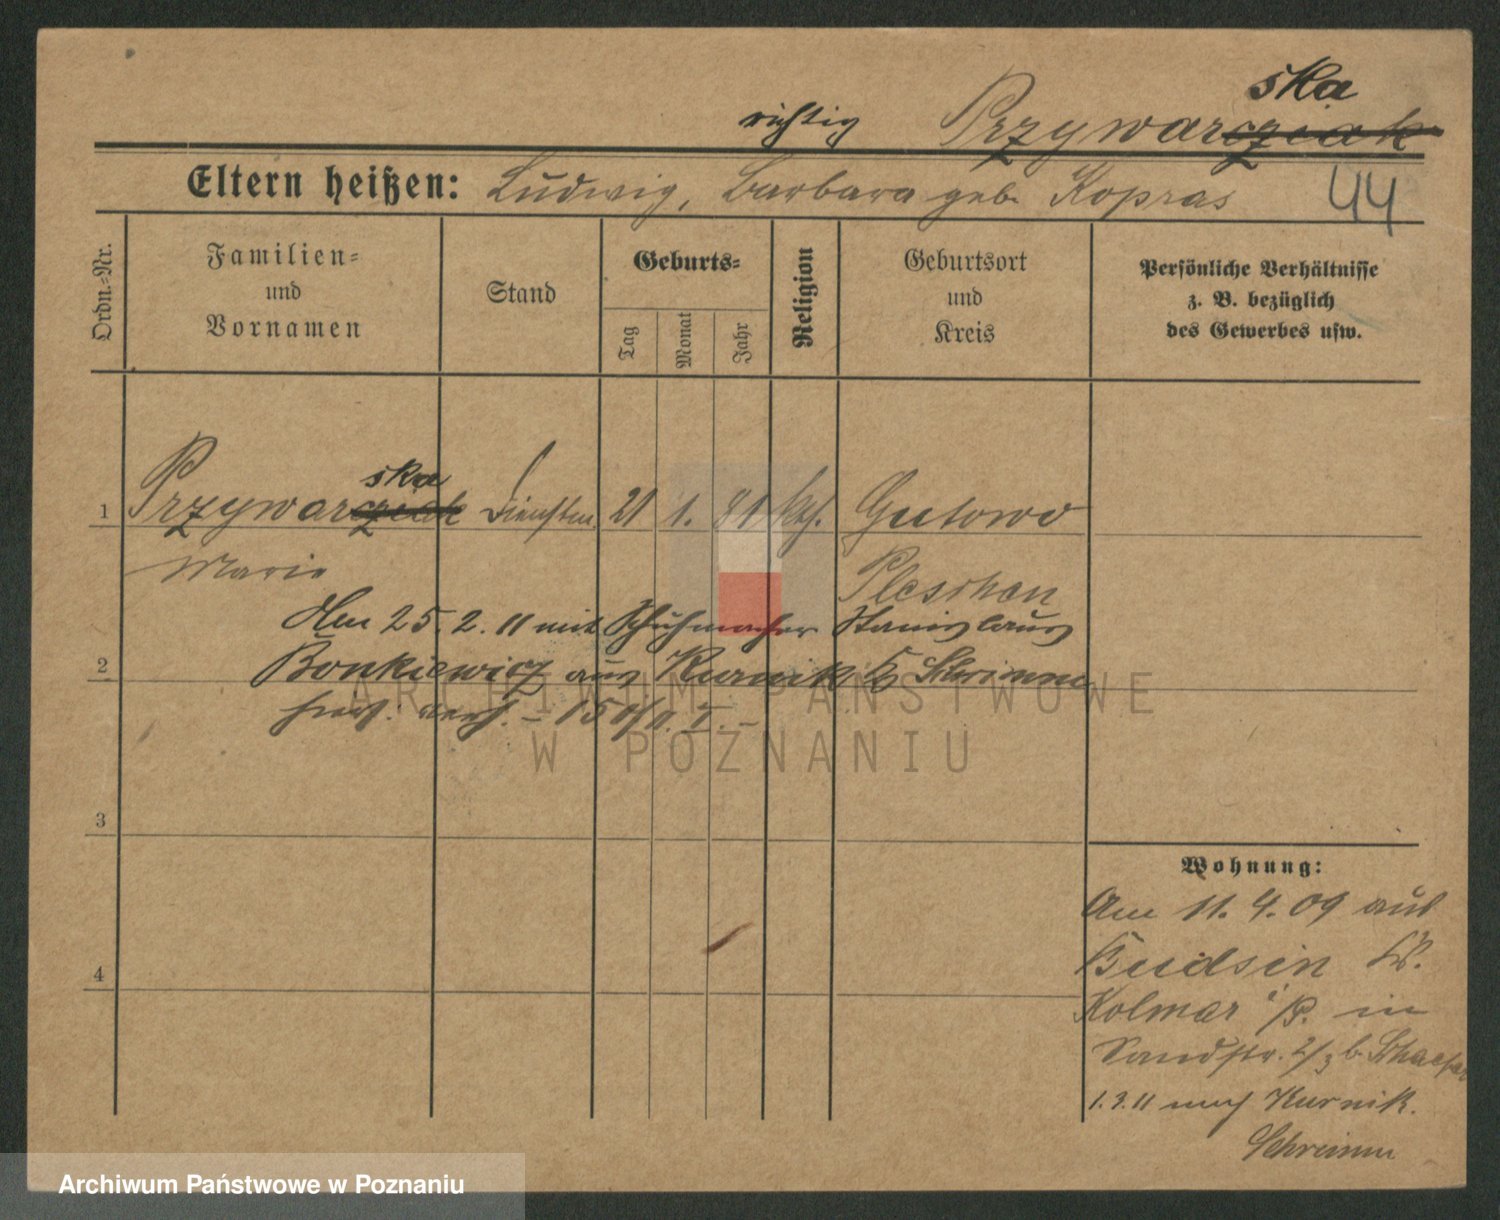 ska
richtig Przywarcziak
Eltern heißen: Ludwig, Barbara geb. Kopras 44
Ordn.-Nr.
Familien-
und
Vornamen
Stand
Geburts-
Tag
Monat
Jahr
Religion
Geburtsort
und
Kreis
Persönliche Verhältnisse
z. B. bezüglich
des Gewerbes usw.
ska
1 Przywarcziak 21 1. 81 kth. Gutowo
Marie Pleschen
Am 25.2.11 mit Schuhmacher Stanislaus
2 Bonkiewicz aus Kurnik Schrimm
verh.
ARCHIWUM PAŃSTWOWE
W POZNANIU
3
Wohnung:
Am 11.4.09 aus
4 Budsin Kr.
Kolmar i/P. in
Sandstr. b.
1.3.11 nach Kurnik.
Schrimm
Archiwum Państwowe w Poznaniu